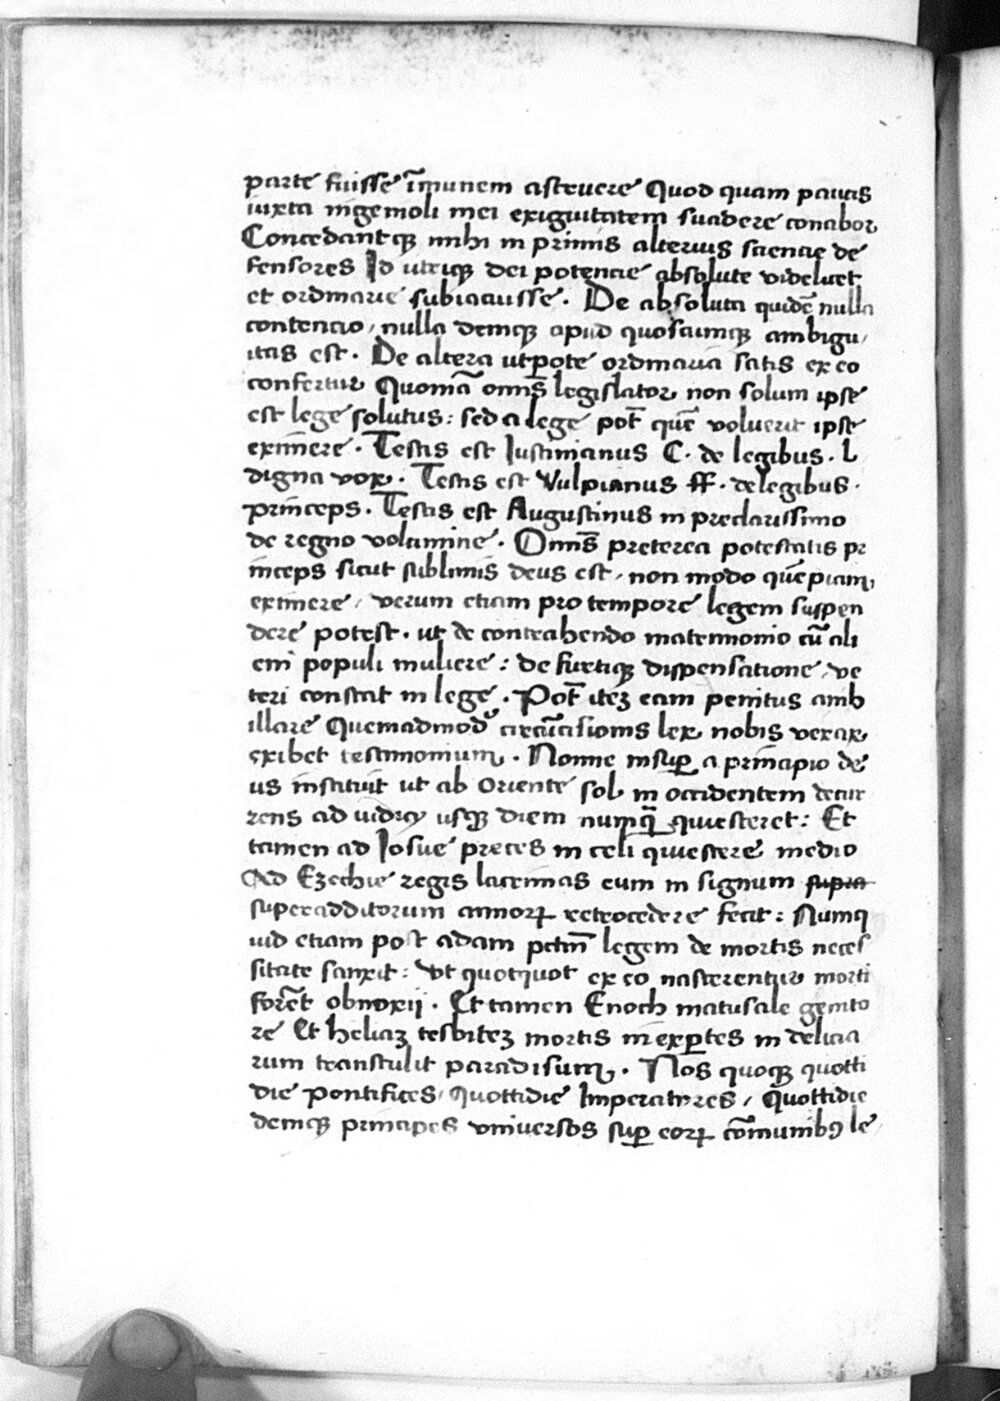 parte fuisse īmunem astruere Quod quam paucis
iuxta ingenioli mei exiguitatem suadere conabor
Concedantqꝫ mihi in primis alterius sciencie de
fensores Id utriqꝫ dei potencie absolute videlicet
et ordinarie subiacuisse. De absoluta quidē nulla
contencio, nulla deniqꝫ apud quoscumqꝫ ambigu,
itas est. De altera utpote ordinaria satis ex eo
confertur Quoniā omīs legislator non solum ipse
est lege solutus: sed a lege pot̄ quē voluerit ipse
eximere. Testis est Iustinianus C. de legibus. L
digna vox. Testis est Vulpianus ff. de legibus.
princeps. Testis est Augustinus in preclarissimo
de regno volumine. Omīs preterea potestatis pr
inceps sicut sublimis deus est, non modo quēpiam
eximere, verum etiam pro tempore legem suspen
dere potest. ut de contrahendo matrimonio cū ali
eni populi muliere: de furtiqꝫ dispensatione, ve
teri constat in lege. Pot̄ itēz eam penitus anb
illare Quemadmodū circūcisionis lex nobis verax
exibet testimonium. Nonne insup̱ a principio de
us instituit ut ab Oriente sol in occidentem decur
rens ad iudicij usqꝫ diem numqꝫ̄ quiesteret: Et
tamen ad Iosue preces in celi quiescere medio
Ad Ezechie regis lacrimas eum in signum supra
superadditorum annorꝝ retrocedere fecit: Numq
uid etiam post adam pctm̄ legem de mortis neces
sitate sanxit: Vt quotquot ex eo nascerentur morti
forēt obnoxij. Et tamen Enoch matusale genito
re Et heliaz tesbitez mortis inexp̱tes in delicia
rum transtulit paradisum. Nos quoqꝫ quotti
die pontifices, quottidie Imperatores, Quottidie
deniqꝫ principes vniversos sup̱ eorꝝ cōmunibꝯ le